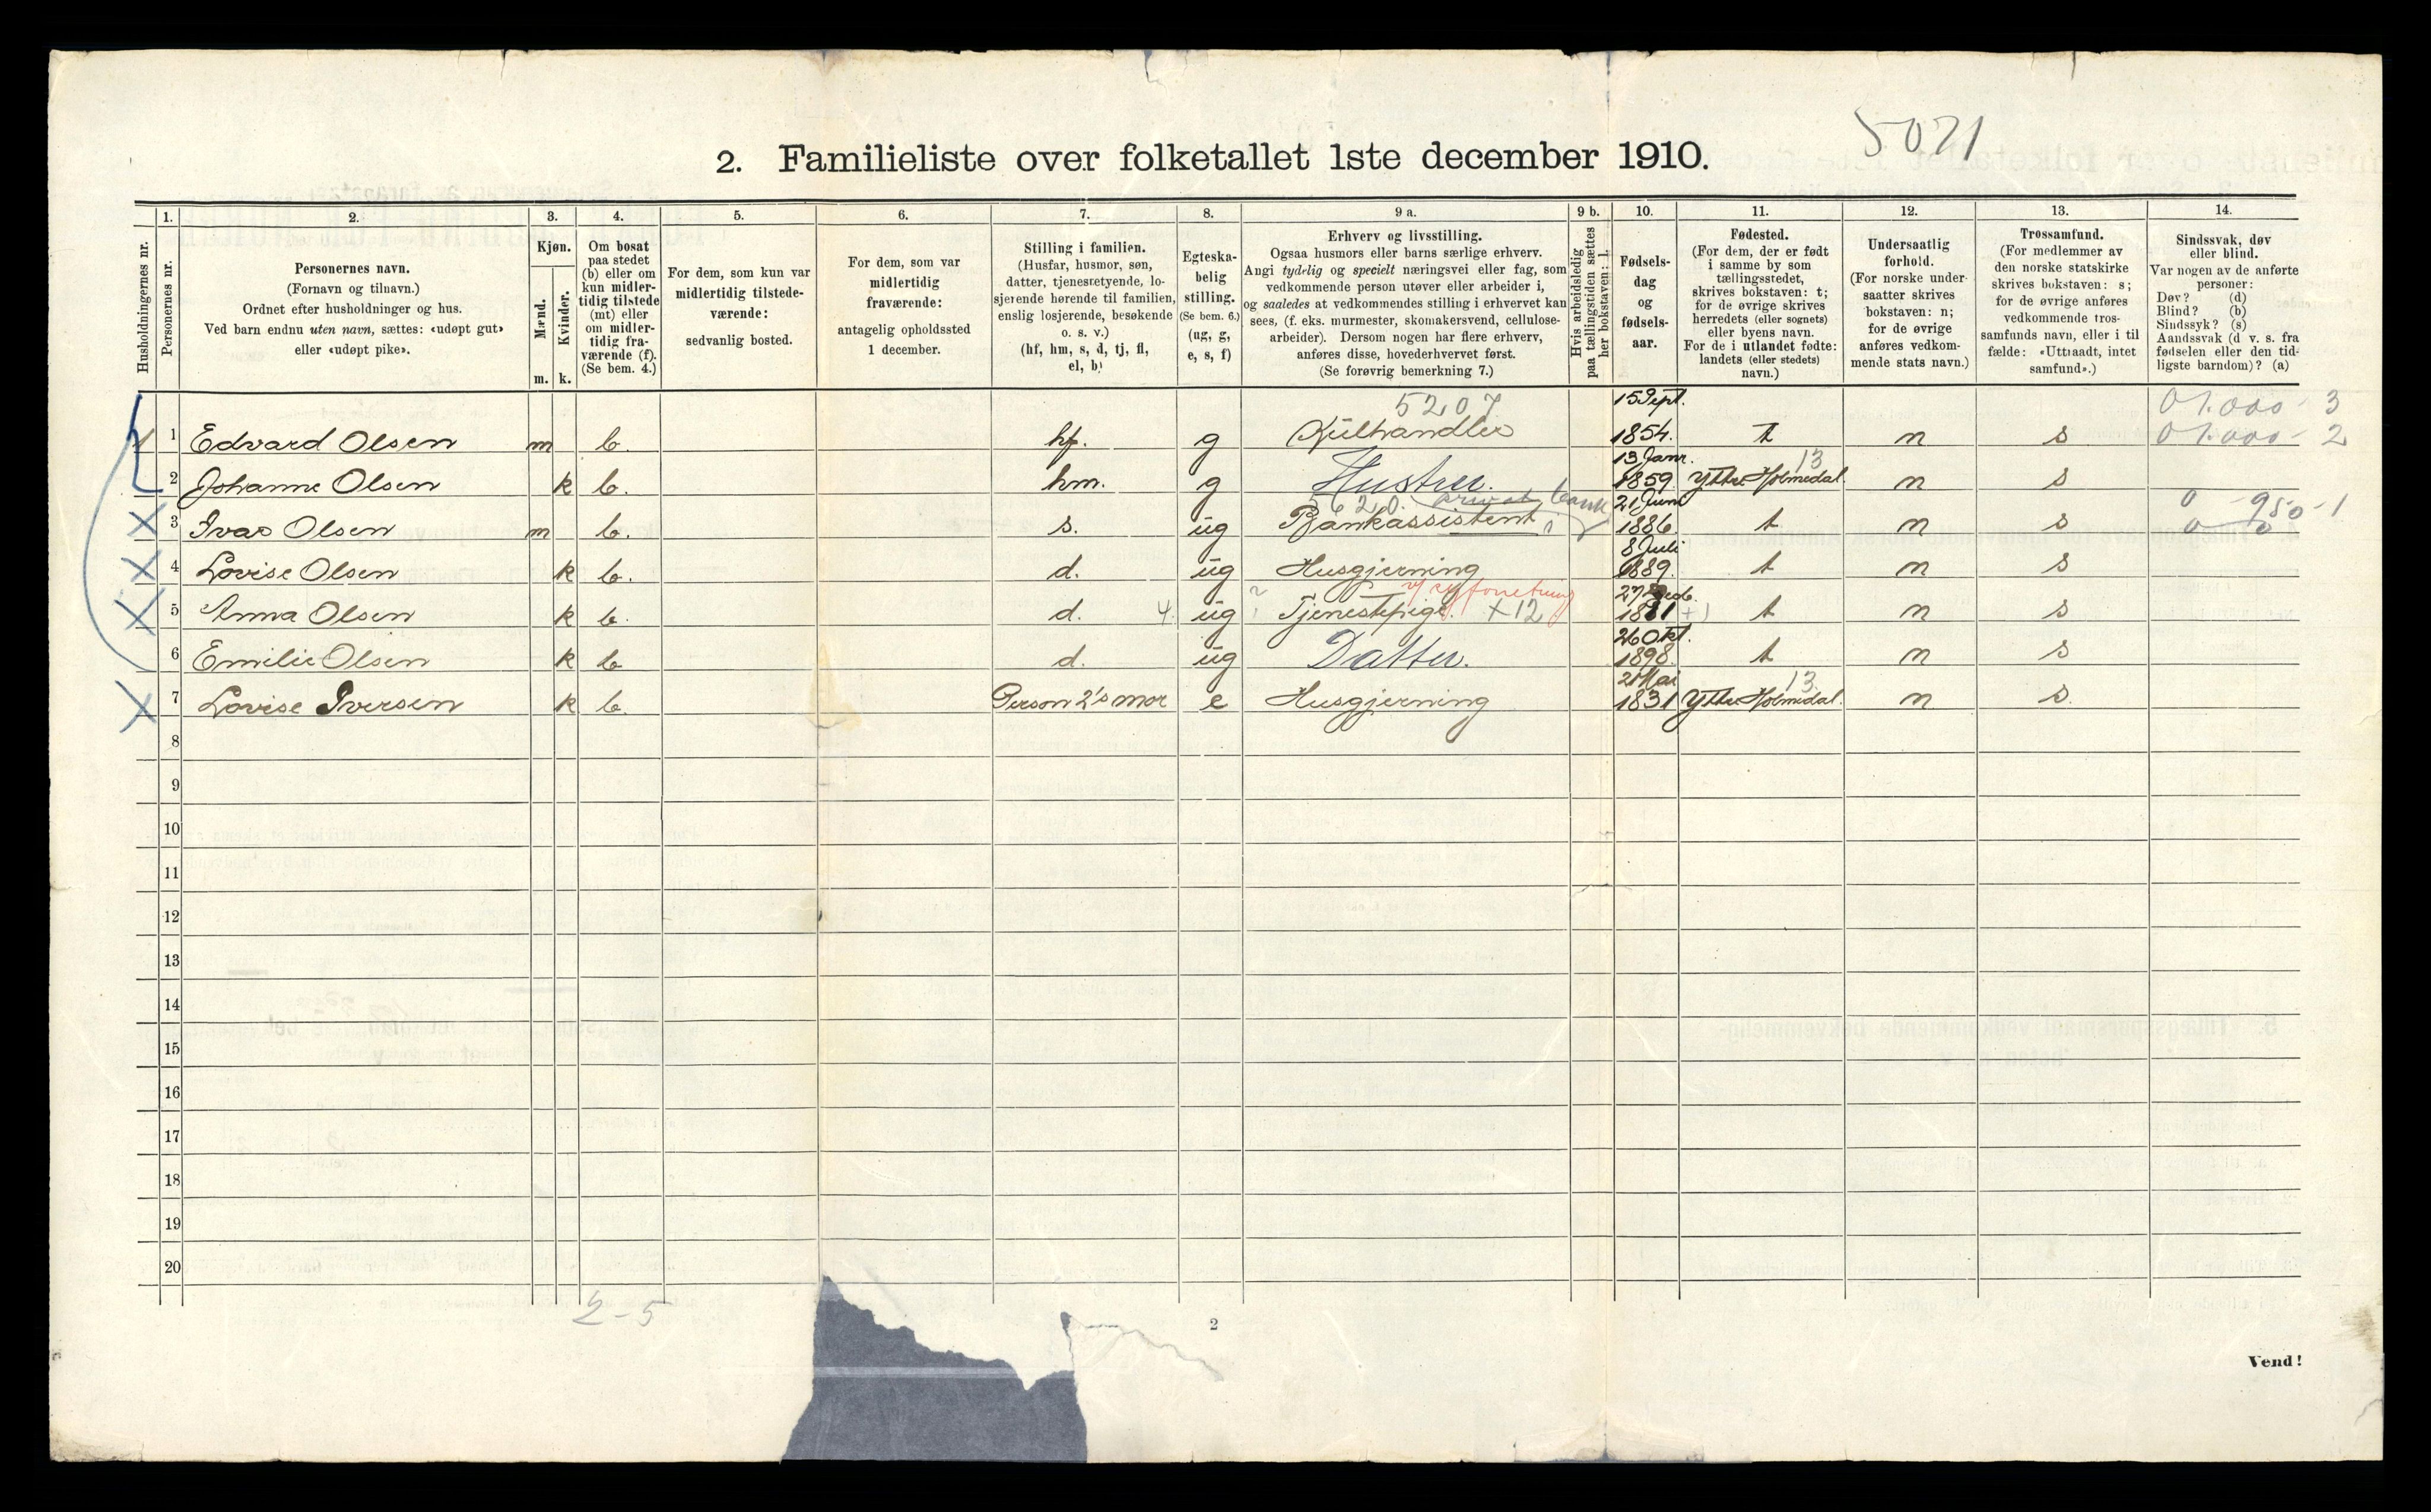 5071
2. Familieliste over folketallet 1ste december 1910.
1. 2. 3. 4. 5. 6. 7. 8. 9 a. 9 b. 10. 11. 12. 13. 14.
Husholdningernes nr.
Personernes nr.
Personernes navn.
(Fornavn og tilnavn.)
Ordnet efter husholdninger og hus.
Ved barn endnu uten navn, sættes: «udøpt gut»
eller «udøpt pike».
Kjøn.
Mænd.
Kvinder.
m. k.
Om bosat
paa stedet
(b) eller om
kun midler-
tidig tilstede
(mt) eller
om midler-
tidig fra-
værende (f).
(Se bem. 4.)
For dem, som kun var
midlertidig tilstede-
værende:
sedvanlig bosted.
For dem, som var
midlertidig
fraværende:
antagelig opholdssted
1 december.
Stilling i familien.
(Husfar, husmor, søn,
datter, tjenestetyende, lo-
sjerende hørende til familien,
enslig losjerende, besøkende
o. s. v.)
(hf, hm, s, d, tj, fl,
el, b)
Egteska-
belig
stilling.
(Se bem. 6.)
(ug, g,
e, s, f)
Erhverv og livsstilling.
Ogsaa husmors eller barns særlige erhverv.
Angi tydelig og specielt næringsvei eller fag, som
vedkommende person utøver eller arbeider i,
og saaledes at vedkommendes stilling i erhvervet kan
sees, (f. eks. murmester, skomakersvend, cellulose-
arbeider). Dersom nogen har flere erhverv,
anføres disse, hovederhvervet først.
(Se forøvrig bemerkning 7.)
Hvis arbeidsledig
paa tællingstiden sættes
her bokstaven: l.
Fødsels-
dag
og
fødsels-
aar.
Fødested.
(For dem, der er født
i samme by som
tællingsstedet,
skrives bokstaven: t;
for de øvrige skrives
herredets (eller sognets)
eller byens navn.
For de i utlandet fødte:
landets (eller stedets)
navn.)
Undersaatlig
forhold.
(For norske under-
saatter skrives
bokstaven: n;
for de øvrige
anføres vedkom-
mende stats navn.)
Trossamfund.
(For medlemmer av
den norske statskirke
skrives bokstaven: s;
for de øvrige anføres
vedkommende tros-
samfunds navn, eller i til-
fælde: «Uttraadt, intet
samfund».)
Sindssvak, døv
eller blind.
Var nogen av de anførte
personer:
Døv? (d)
Blind? (b)
Sindssyk? (s)
Aandssvak (d v. s. fra
fødselen eller den tid-
ligste barndom)? (a)
5207 15 Sept. 3
1 Edvard Olsen m b. hf. g Kulhandler 1854. t n s 2
13 Janr. 13
2 Johanne Olsen k b. hm. g Hustru. 1859. Ytre Holmedal. n s
620. privat bank 21 Juni 0 - 950 - 1
3 Ivar Olsen m b. s. ug Bankassistent 1886. t n s 0 0
8 Juli
4 Lovise Olsen k b. d. ug Husgjerning 1889. t n s
5 Anna Olsen k b. d. 4 ug ? Tjenestepige. +12 +1 t n s
26 Okt.
6 Emilie Olsen k b d. ug Datter. 1898. t n s
2 Mai 13
7 Lovise Iversen k b. Person 2's mor e Husgjerning 1831 Ytre Holmedal. n s.
8
9
10
11
12
13
14
15
16
17
18
19
20
2 - 5
2
Vend!